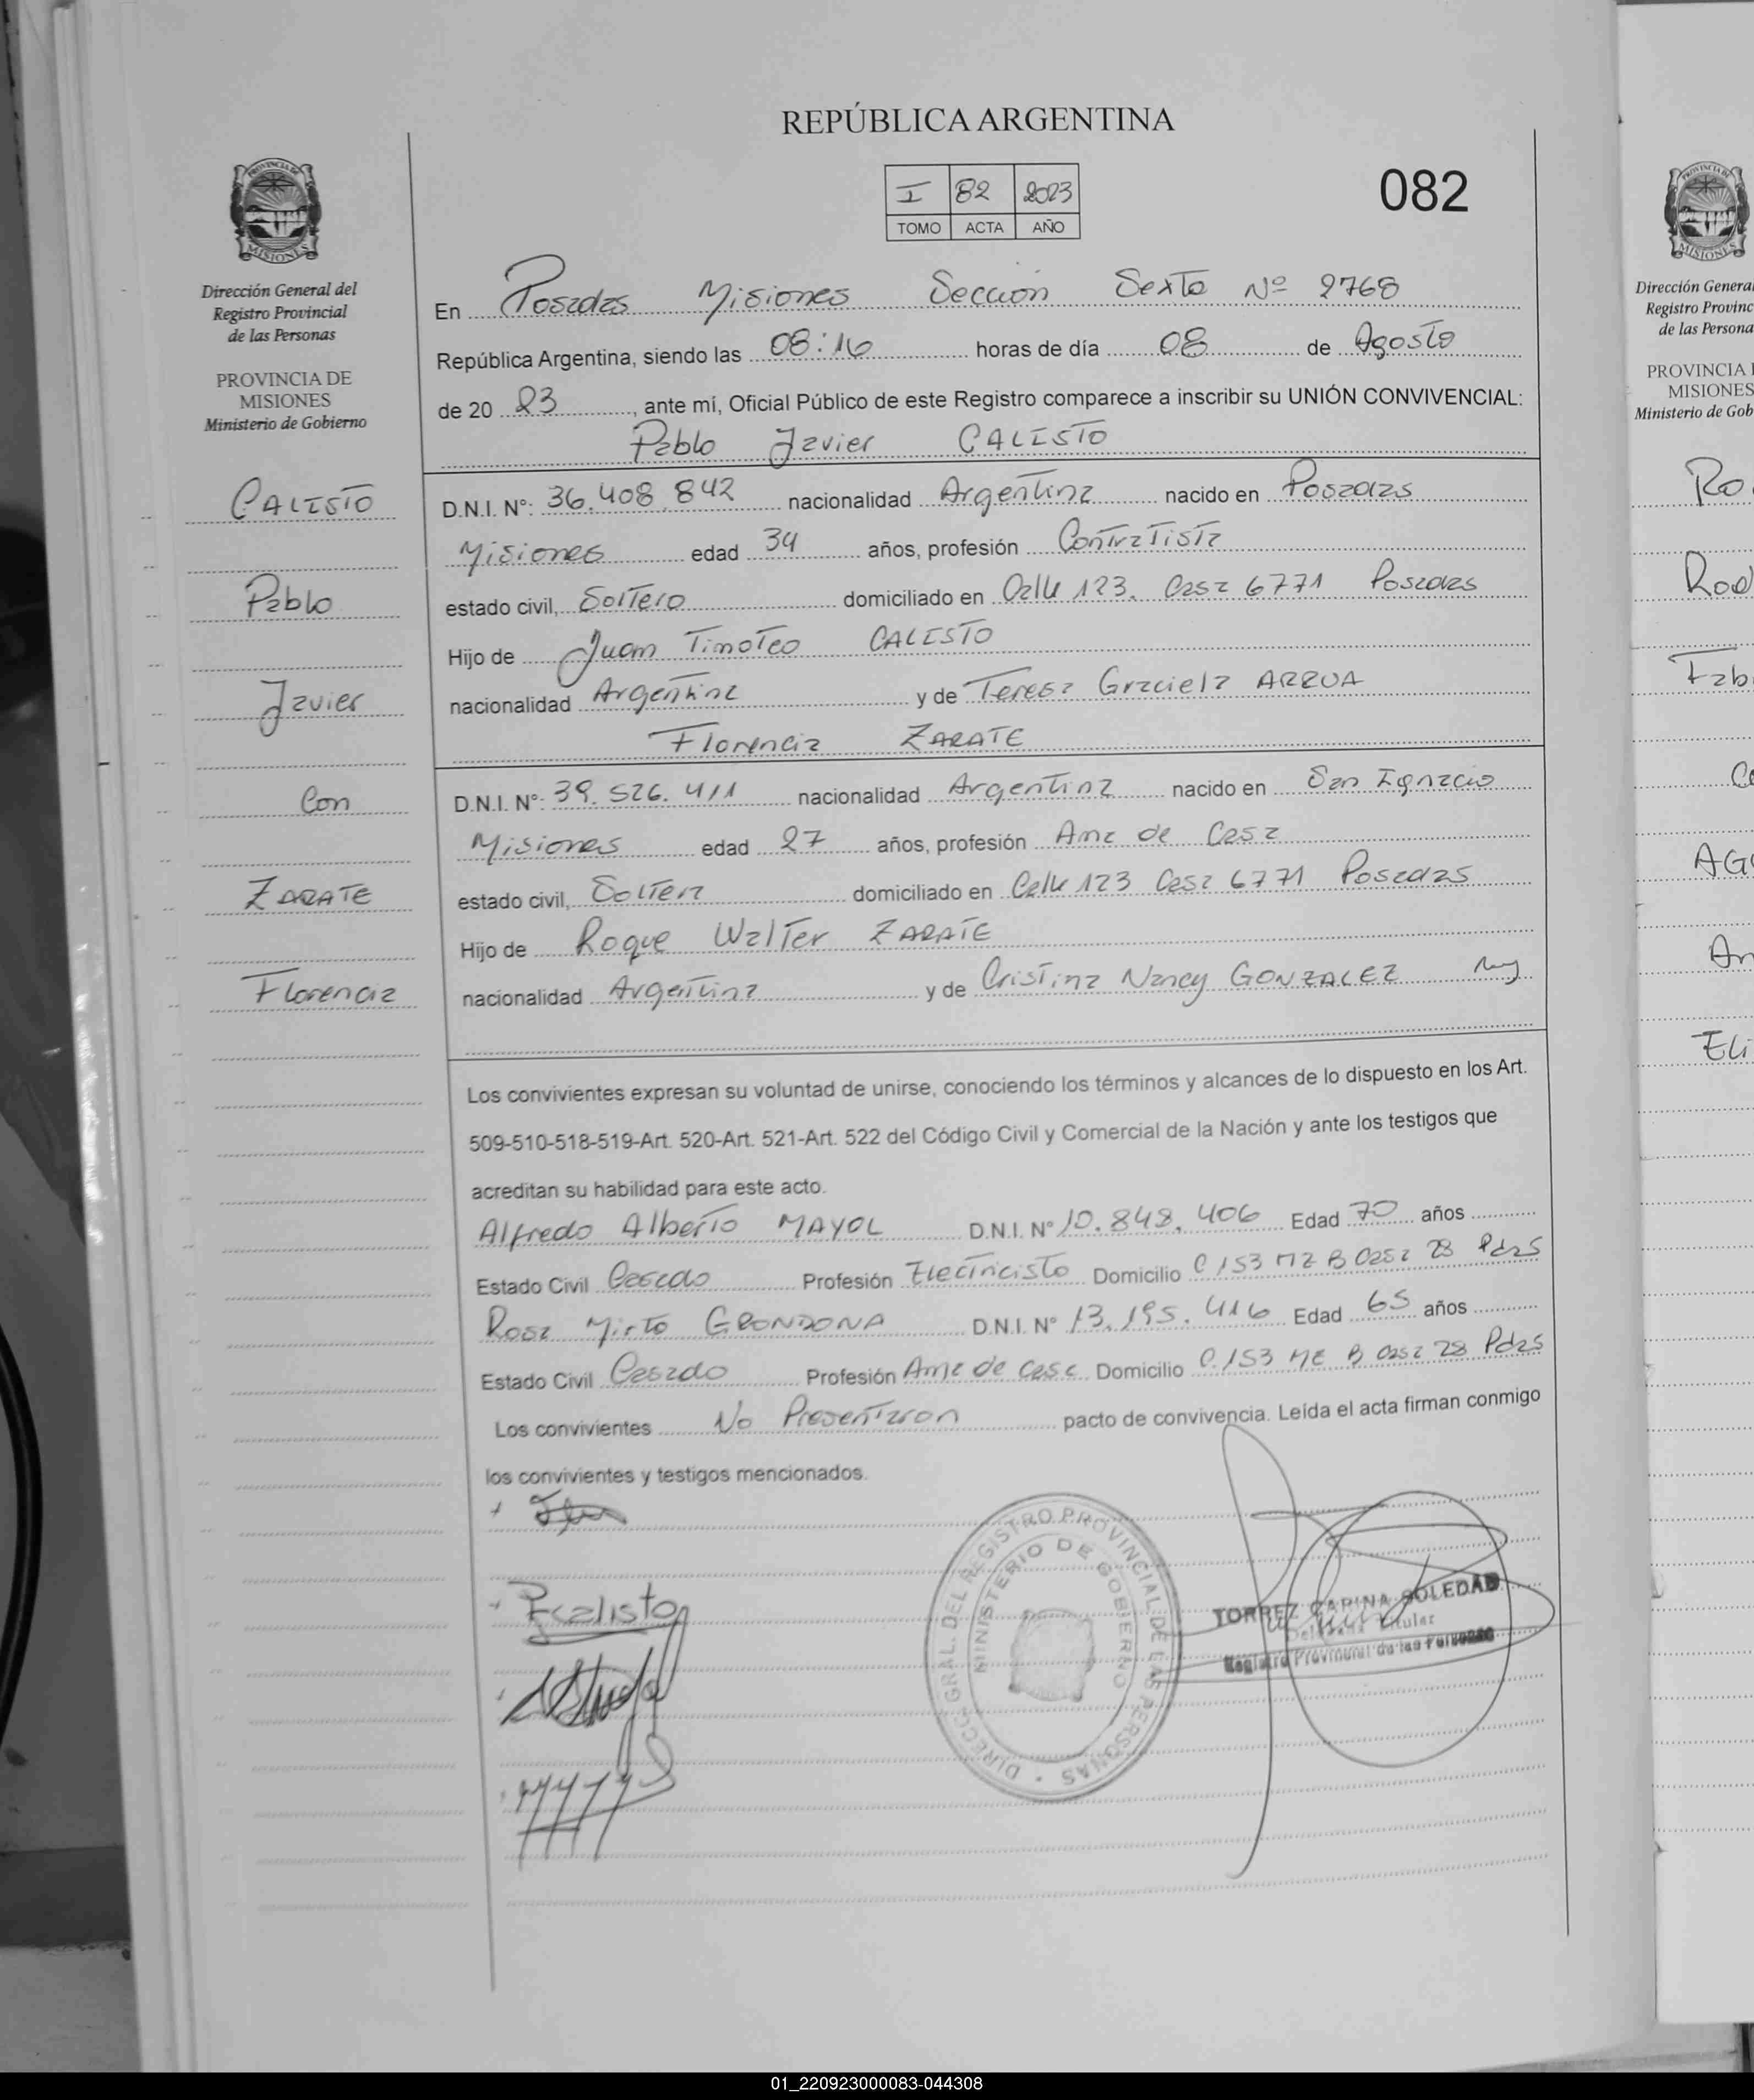 REPÚBLICA ARGENTINA
I 82 2023
TOMO ACTA AÑO
082
Dirección General del
Registro Provincial
de las Personas
PROVINCIA DE
MISIONES
Ministerio de Gobierno
CALISTO
Pablo
Javier
Con
ZARATE
Florencia
En Posadas Misiones Sección Sexta Nº 2768
República Argentina, siendo las 08:16 horas de día 08 de Agosto
de 20 23, ante mí, Oficial Público de este Registro comparece a inscribir su UNIÓN CONVIVENCIAL:
Pablo Javier CALISTO
D.N.I. Nº: 36.408.842 nacionalidad Argentina nacido en Posadas
Misiones edad 34 años, profesión Contratista
estado civil, Soltero domiciliado en Calle 123. Casa 6771 Posadas
Hijo de Juan Timoteo CALISTO
nacionalidad Argentina y de Teresa Graciela ARRUA
Florencia ZARATE
D.N.I. Nº: 39.526.411 nacionalidad Argentina nacido en San Ignacio
Misiones edad 27 años, profesión Ama de Casa
estado civil, Soltera domiciliado en Calle 123 Casa 6771 Posadas
Hijo de Roque Walter ZARATE
nacionalidad Argentina y de Cristina Nancy GONZALEZ
Los convivientes expresan su voluntad de unirse, conociendo los términos y alcances de lo dispuesto en los Art.
509-510-518-519-Art. 520-Art. 521-Art. 522 del Código Civil y Comercial de la Nación y ante los testigos que
acreditan su habilidad para este acto.
Alfredo Alberto MAYOL D.N.I. Nº 10.848.406 Edad 70 años
Estado Civil Casado Profesión Electricista Domicilio C 153 MZ B Casa 28 Pdas
Rosa Mirta GRONDONA D.N.I. Nº 13.195.416 Edad 65 años
Estado Civil Casado Profesión Ama de Casa Domicilio C.153 MZ B Casa 28 Pdas
Los convivientes No Presentaron pacto de convivencia. Leída el acta firman conmigo
los convivientes y testigos mencionados.
Pcalisto
DIRECC. GRAL. DEL REGISTRO PROVINCIAL DE LAS PERSONAS
MINISTERIO DE GOBIERNO
TORREZ CARINA SOLEDAD
Delegada Titular
Registro Provincial de las Personas
Dirección General
Registro Provinc
de las Persona
PROVINCIA
MISIONES
Ministerio de Gob
Ro
Rod
Fab
Co
AG
An
Eli
01_220923000083-044308